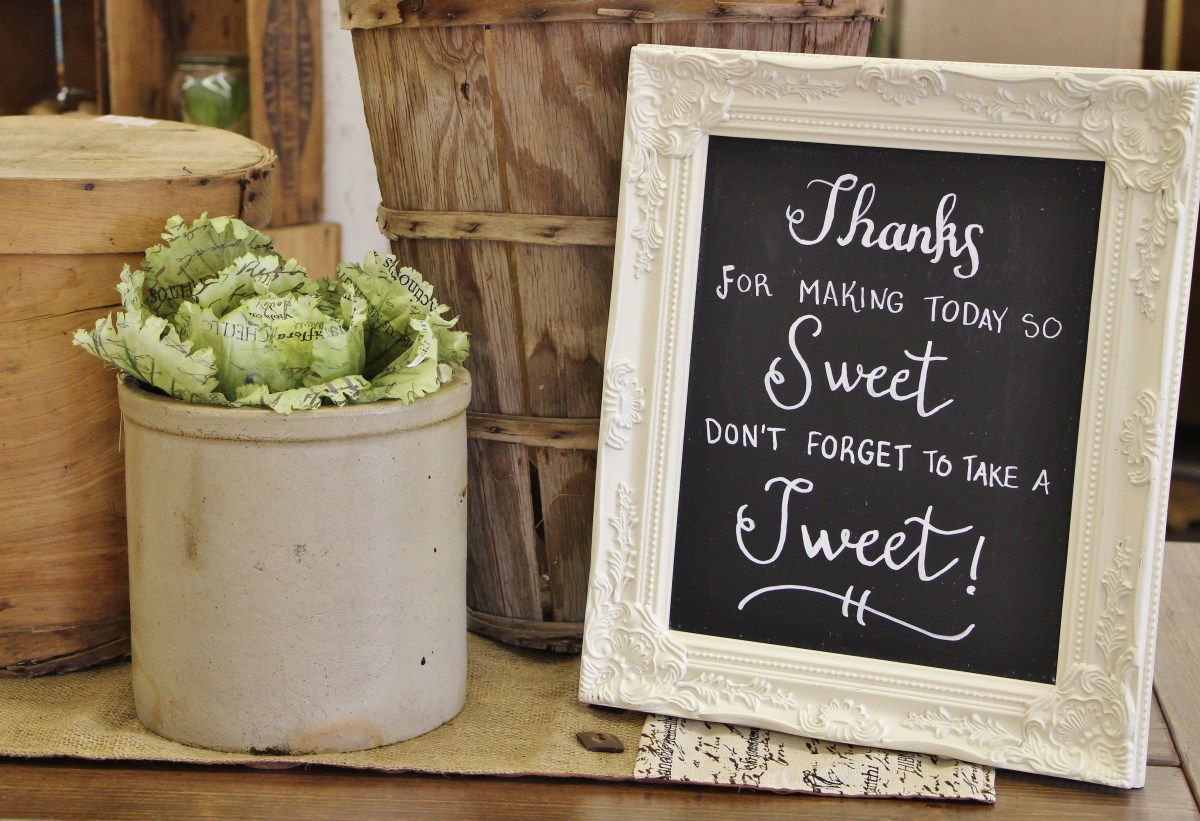 Thanks
FOR MAKING TODAY SO
Sweet
DON'T FORGET TO TAKE A
Tweet!